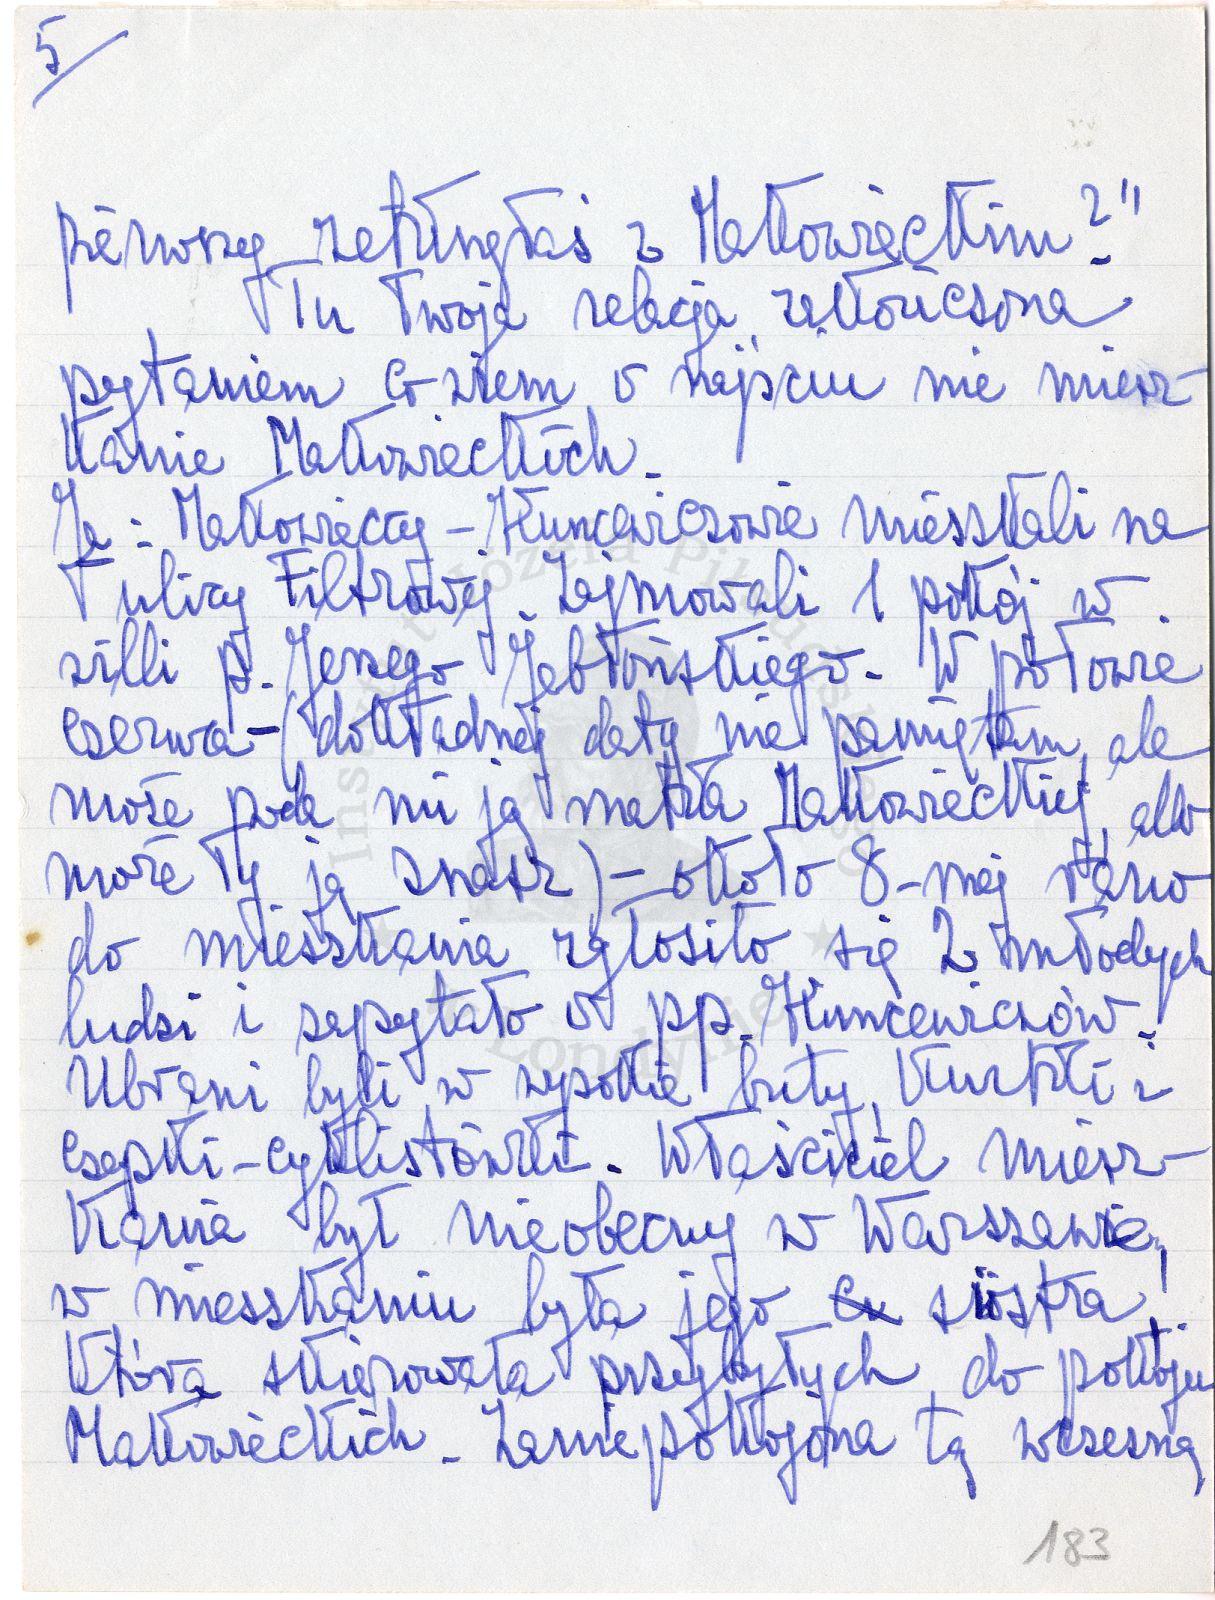 5/
pierwszy zetknęłaś z Makowieckim?"
Tu Twoja relacja, zakończona
pytaniem co wiem o najściu na miesz-
kanie Makowieckich.
Ja: Makowieccy - Kuncewiczowie mieszkali na
ulicy Filtrowej. Zajmowali 1 pokój w
willi p. Jerzego Jabłońskiego. W połowie
czerwca - (dokładnej daty nie pamiętam, ale
może poda mi ją matka Makowieckiej, albo
może Ty ją znasz) - około 8-mej rano
do mieszkania zgłosiło się 2 młodych
ludzi i zapytało o pp. Kuncewiczów.
Ubrani byli w wysokie buty, kurtki i
czapki - cyklistówki. Właściciel miesz-
kania był nieobecny w Warszawie,
w mieszkaniu była jego siostra,
która skierowała przybyłych do pokoju
Makowieckich. Zaniepokojona tą wczesną
183
Instytut Józefa Piłsudskiego
w Londynie